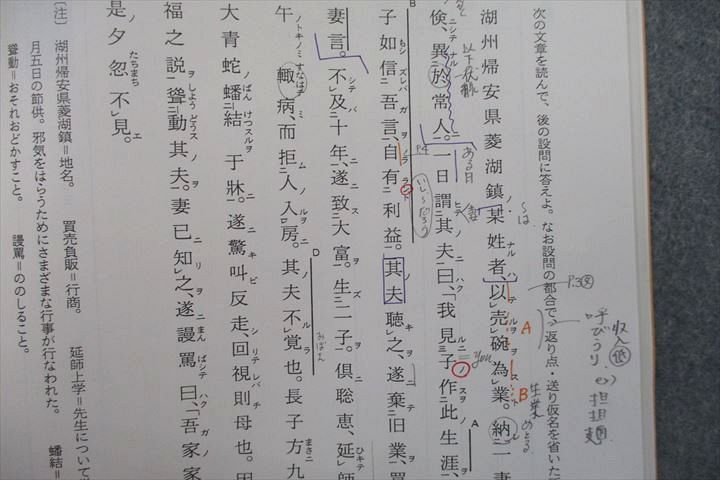 次の文章を読んで、後の設問に答えよ。なお設問の都合で、返り点・送り仮名を省いた
湖州帰安県菱湖鎮某姓者、以売碗為業。納一妻
倹、異於常人。一日謂其夫曰、「我見子作此生涯、
子如信吾言、自有利益。其夫聴之、遂棄旧業、買
妻言。不及十年、遂致大富。生二子。倶聡恵、延師
午 輙病、而拒人入房。其夫不覚也。長子方九
大青蛇蟠結于牀。遂驚叫反走、回視則母也。因
福之説聳動其夫。妻已知之、遂謾罵曰、「吾家家
是夕忽不見。
〔注〕 湖州帰安県菱湖鎮＝地名。 買売負販＝行商。 延師上学＝先生について
月五日の節供。邪気をはらうためにさまざまな行事が行なわれた。 蟠結＝
聳動＝おそれおどかすこと。 謾罵＝ののしること。
A
B
A
B
D
ある日
you
呼びうり
収入 低
生業
めとる